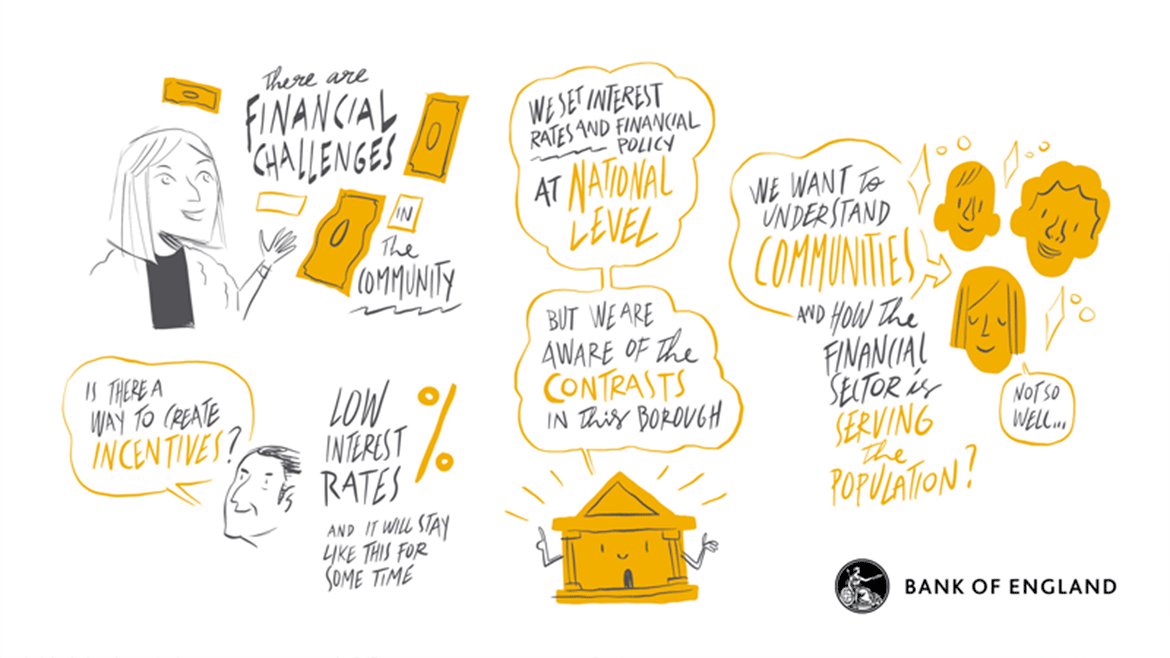 There are
FINANCIAL
CHALLENGES
IN
The
COMMUNITY
IS THERE A
WAY TO CREATE
INCENTIVES?
LOW
INTEREST
RATES
%
AND IT WILL STAY
LIKE THIS FOR
SOME TIME
WE SET INTEREST
RATES AND FINANCIAL
POLICY
AT NATIONAL
LEVEL
BUT WE ARE
AWARE OF the
CONTRASTS
IN this BOROUGH
WE WANT to
UNDERSTAND
COMMUNITIES
AND HOW the
FINANCIAL
SECTOR is
SERVING
the
POPULATION?
NOT SO
WELL...
BANK OF ENGLAND